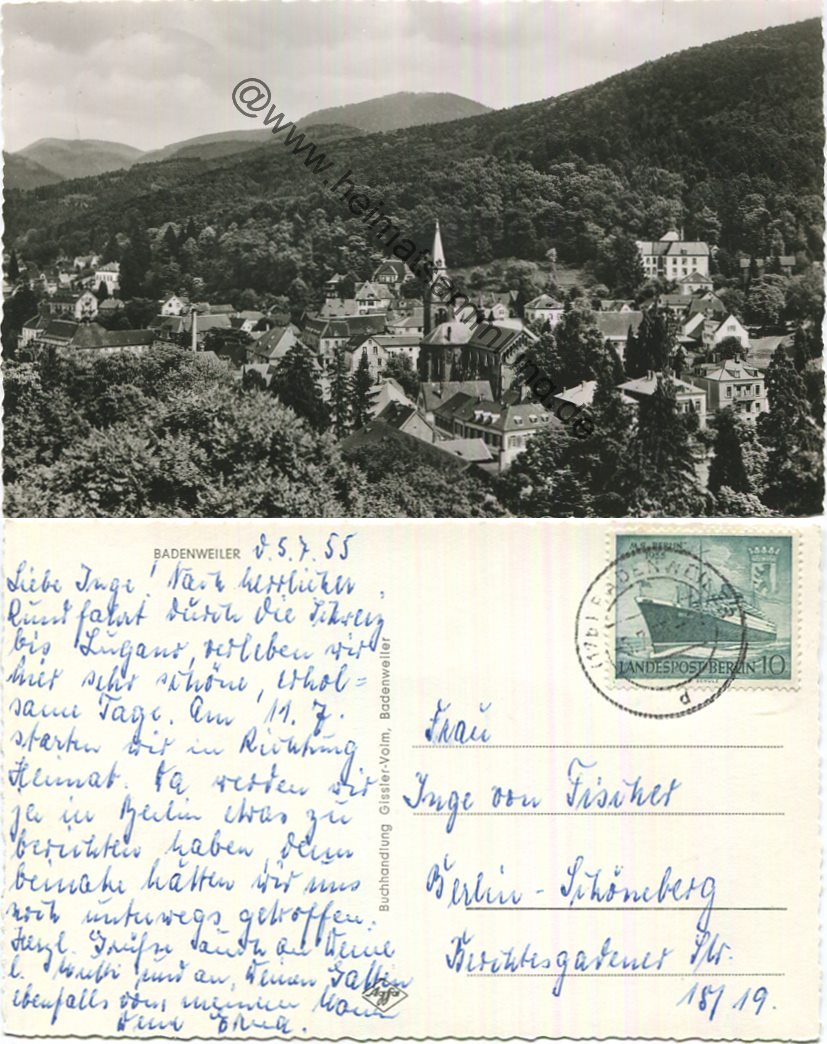 @www.heimatsammlung.de
BADENWEILER d. 5.7.55
Liebe Inge! Nach herrlicher
Rundfahrt durch die Schweiz
bis Lugano, verleben wir
hier sehr schöne, erhol=
same Tage. Am 11. 7.
starten wir in Richtung
Heimat. Da werden wir
ja in Berlin etwas zu
berichten haben, denn
beinahe hätten wir uns
noch unterwegs getroffen.
Herzl. Grüße auch an Deine
l. Mutti und an Deinen Gatten
ebenfalls von meinem Mann
Deine Erna.
Buchhandlung Gissler-Volm, Badenweiler
Agfa
M.S. "BERLIN"
1955
LANDESPOST BERLIN 10
SCHULZ
BADENWEILER
(17b)
Frau
Inge von Fischer
Berlin-Schöneberg
Berchtesgadener Str.
18/19.